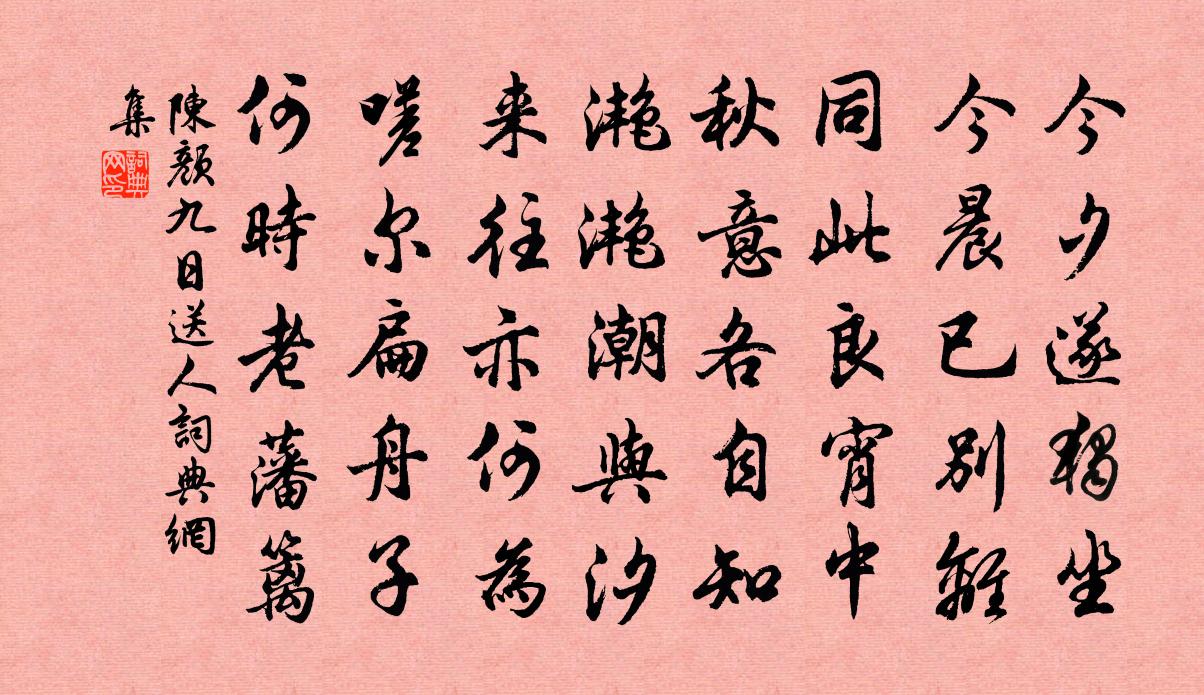 今夕遂獨坐
今晨已別離
同此良宵中
秋意各自知
灔灔潮與汐
来往亦何為
嗟尔扁舟子
何時老藩篱
陳顔九日送人詞典網
集
詞典
网印